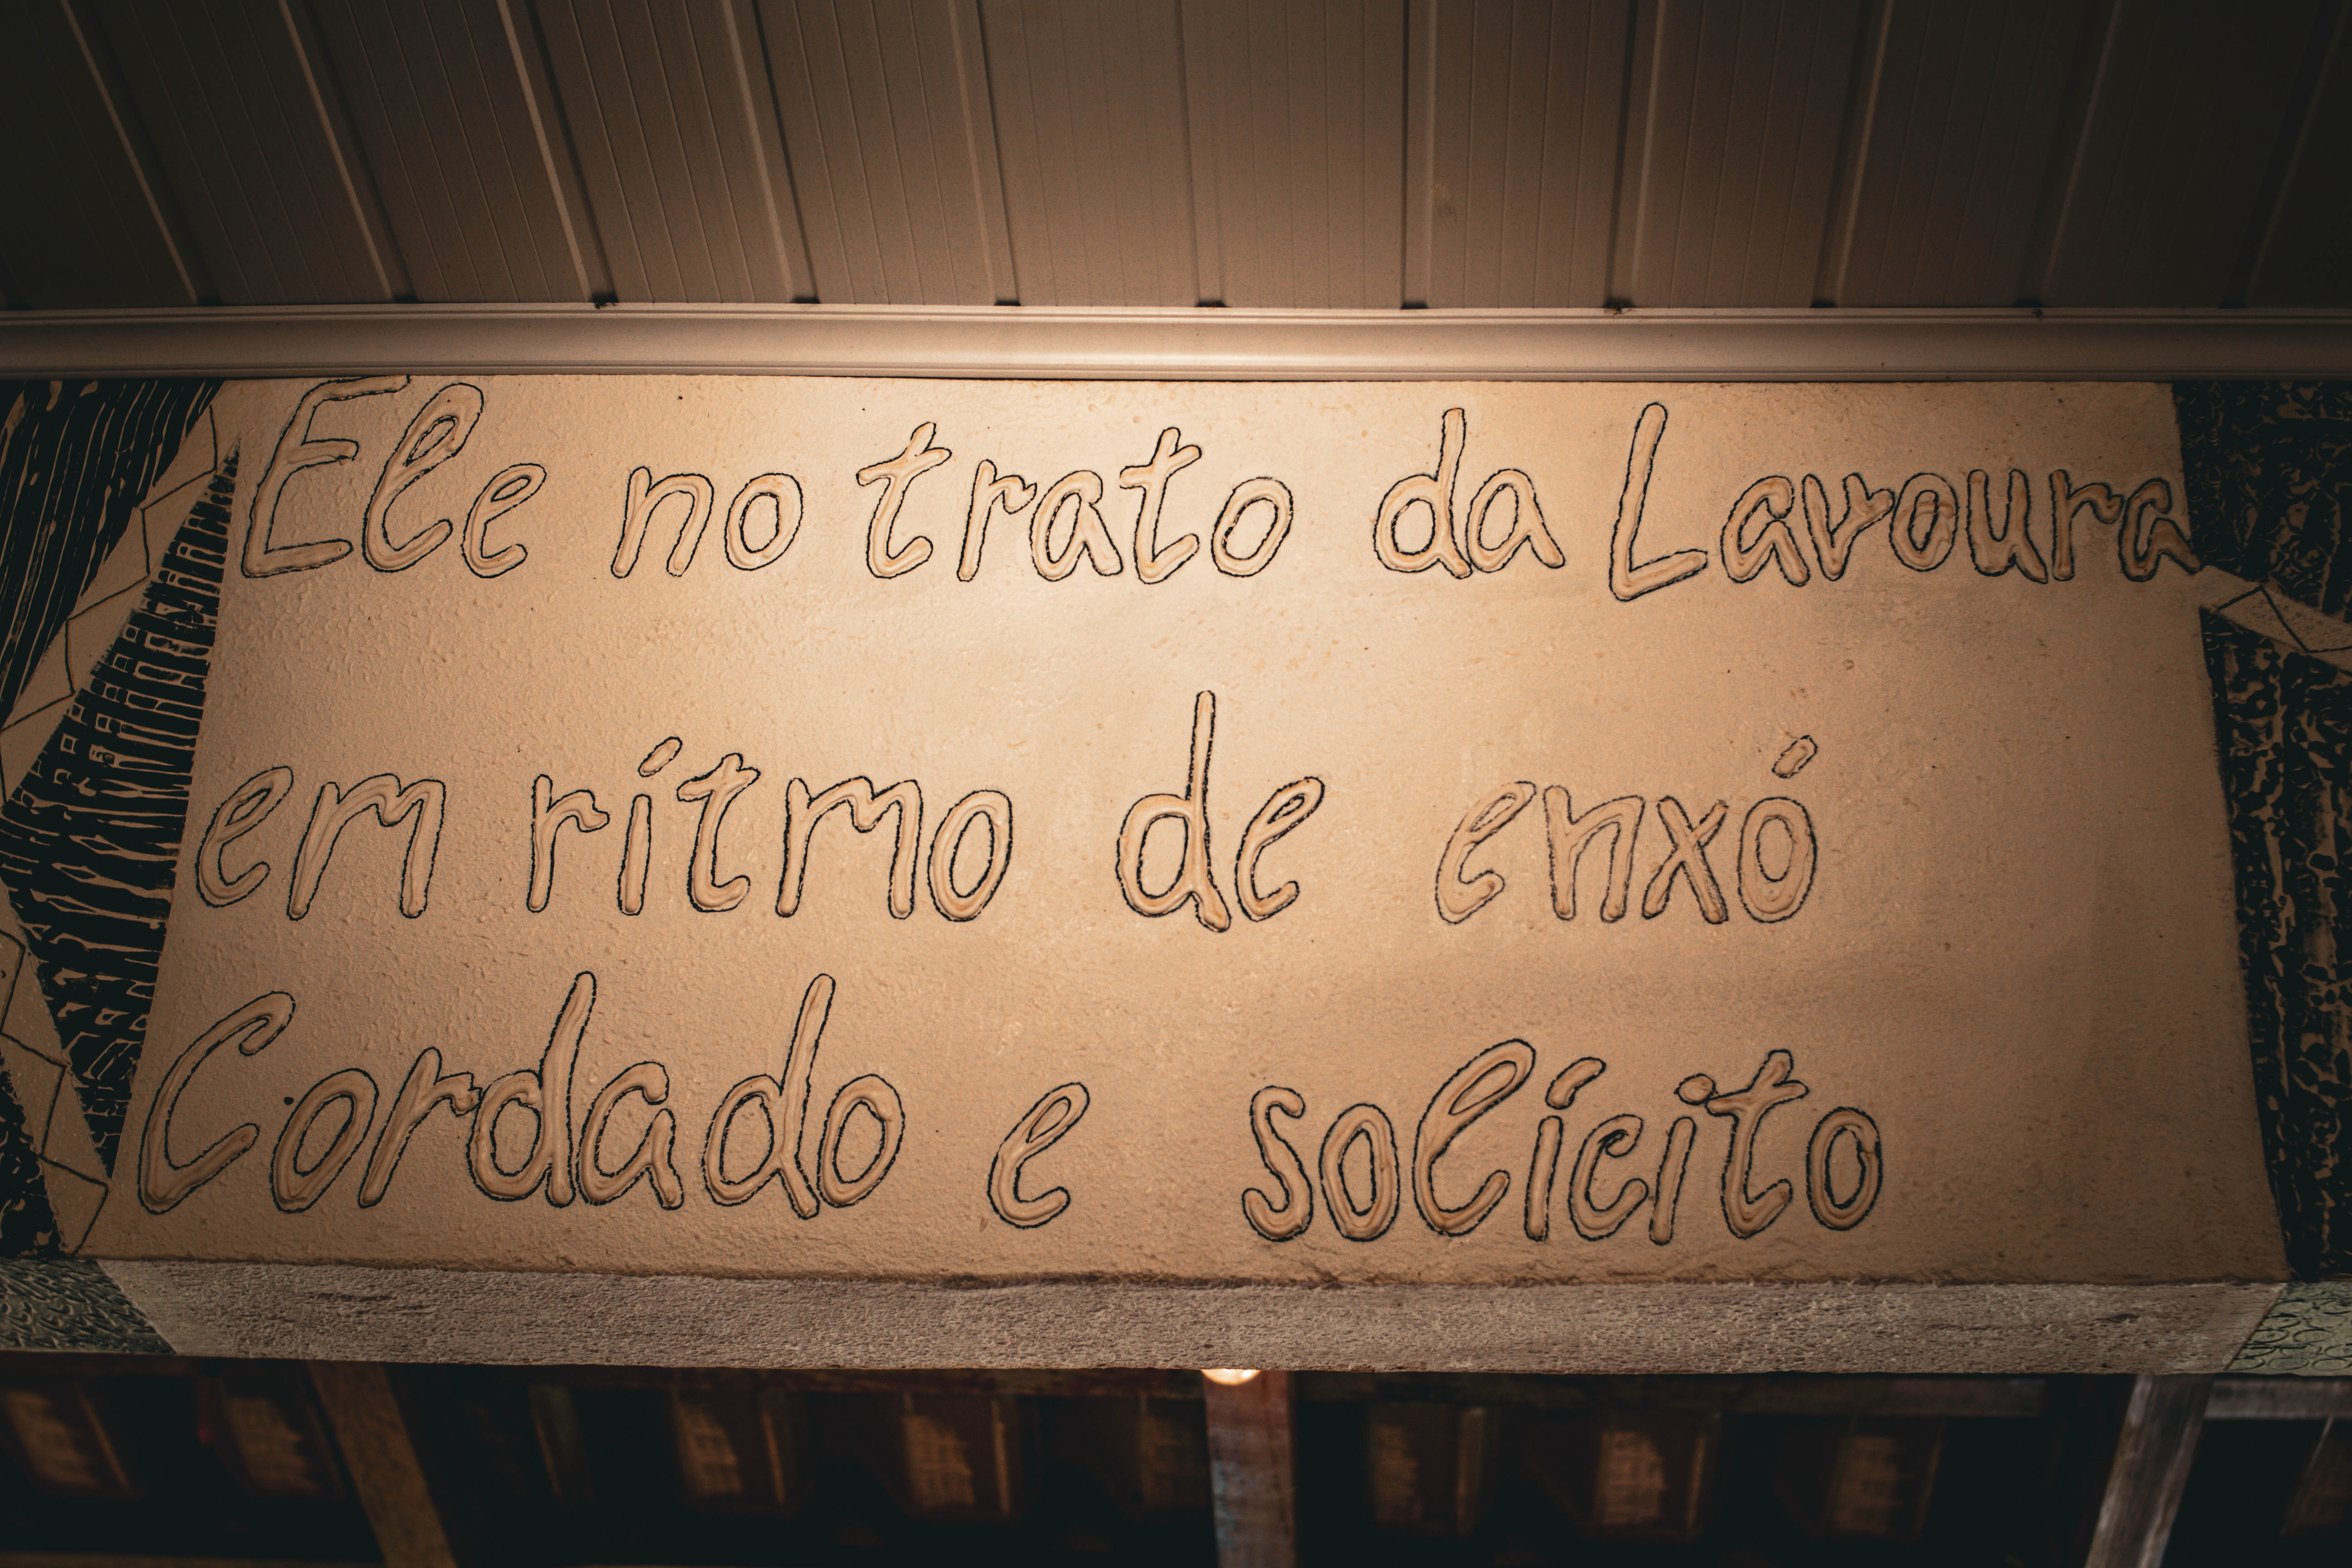 Ele no trato da Lavoura
em ritmo de enxó
Cordado e solícito